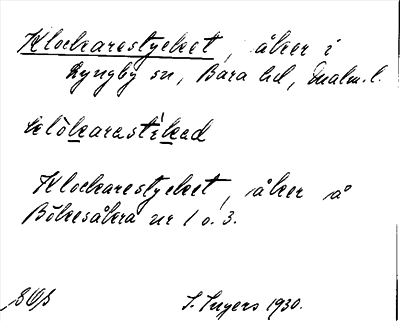 Klockarestycket, åker i
Lyngby sn, Bara hd, Malm. l.
klòkarastìkad
Klockarestycket, åker å
Bökesåkra nr 1 o. 3.
I. Ingers 1930.